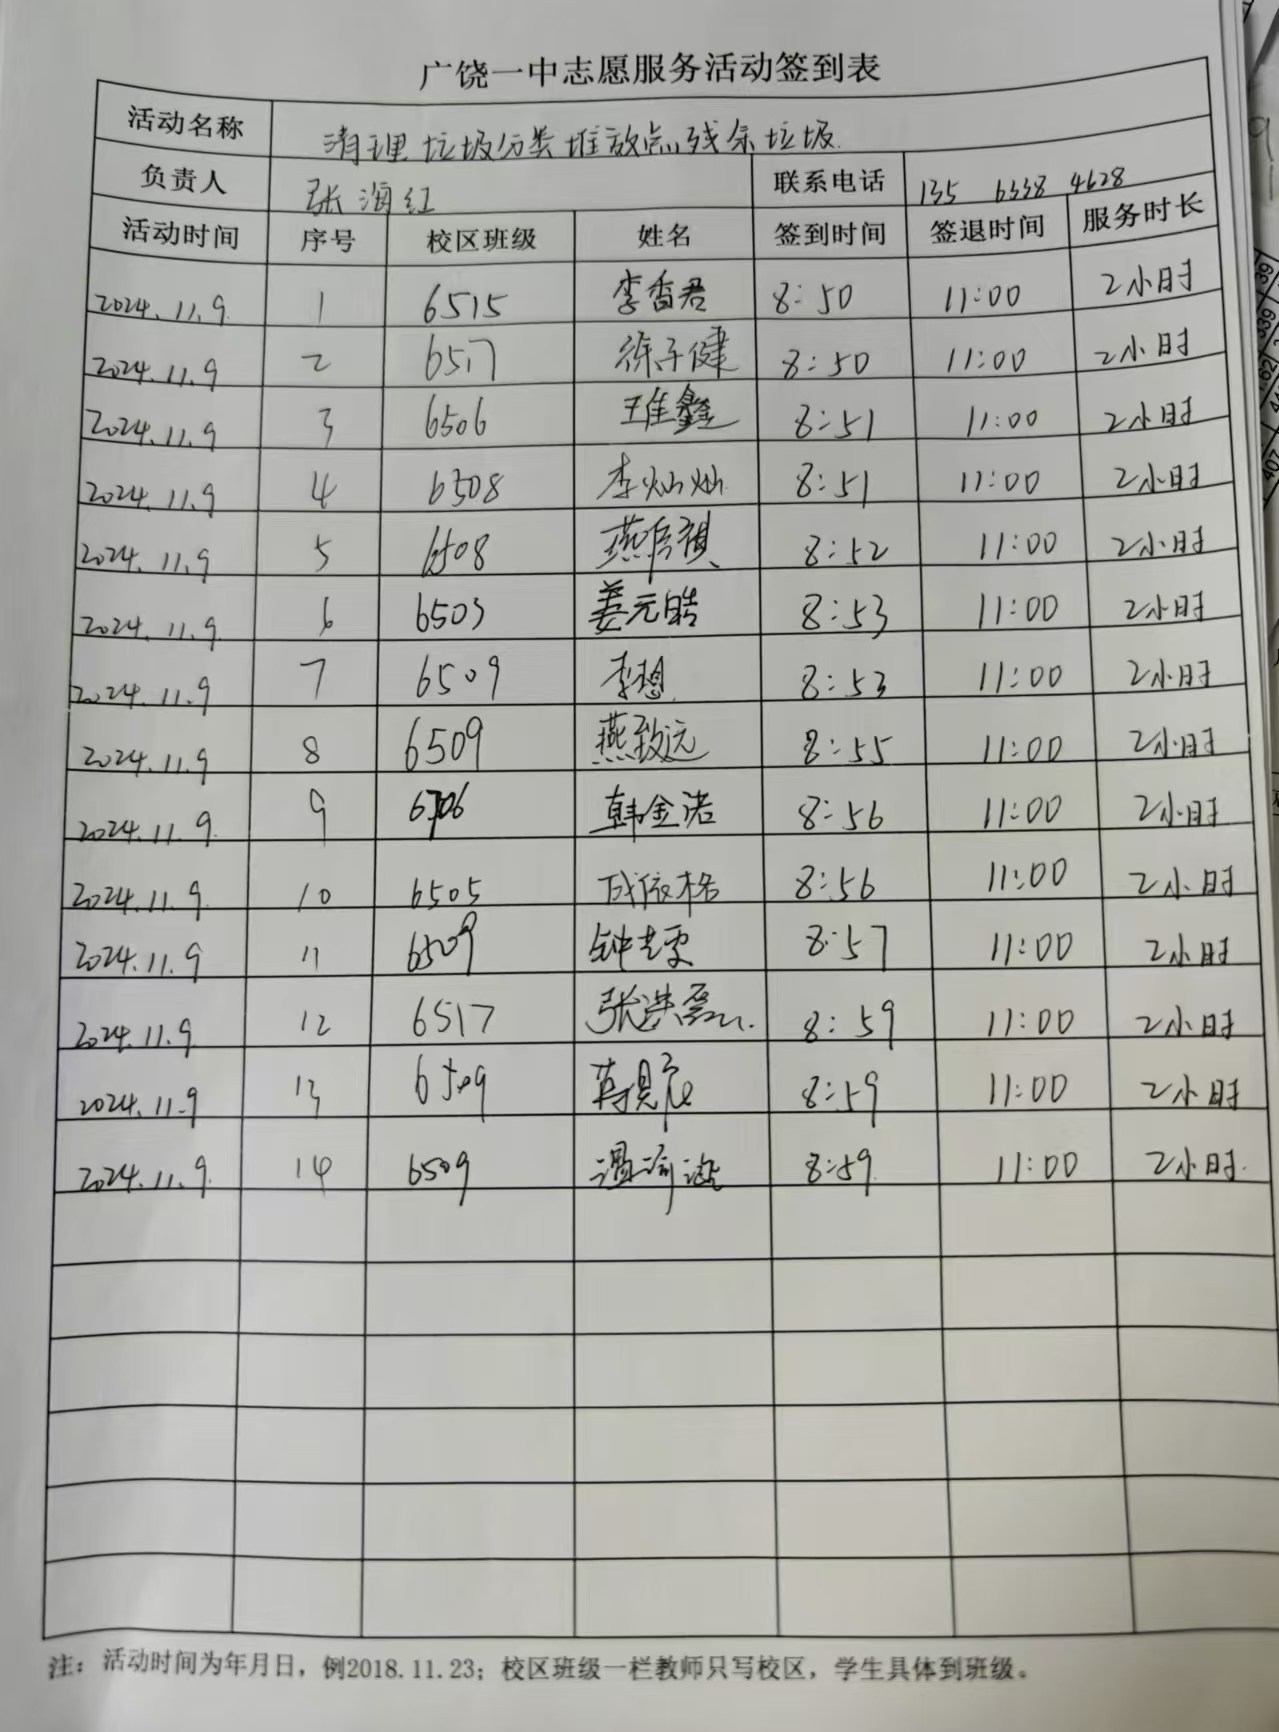 广饶一中志愿服务活动签到表
活动名称 清理垃圾分类堆放点残余垃圾.
负责人 张海红 联系电话 135 6338 4628
活动时间 序号 校区班级 姓名 签到时间 签退时间 服务时长
2024.11.9. 1 6515 李香君 8:50 11:00 2小时
2024.11.9 2 6517 徐子健 8:50 11:00 2小时
2024.11.9 3 6506 王佳鑫 8:51 11:00 2小时
2024.11.9 4 6508 李灿灿 8:51 11:00 2小时
2024.11.9 5 6508 燕 8:52 11:00 2小时
2024.11.9 6 6503 姜元皓 8:53 11:00 2小时
2024.11.9 7 6509 李想 8:53 11:00 2小时
2024.11.9 8 6509 燕致远 8:55 11:00 2小时
2024.11.9. 9 韩金诺 8:56 11:00 2小时
2024.11.9. 10 6505 成依格 8:56 11:00 2小时
2024.11.9 11 6509 钟 8:57 11:00 2小时
2024.11.9. 12 6517 张洪磊 8:59 11:00 2小时
2024.11.9 13 6509 8:59 11:00 2小时
2024.11.9. 14 6509 8:59. 11:00 2小时.
注：活动时间为年月日，例2018.11.23；校区班级一栏教师只写校区，学生具体到班级。